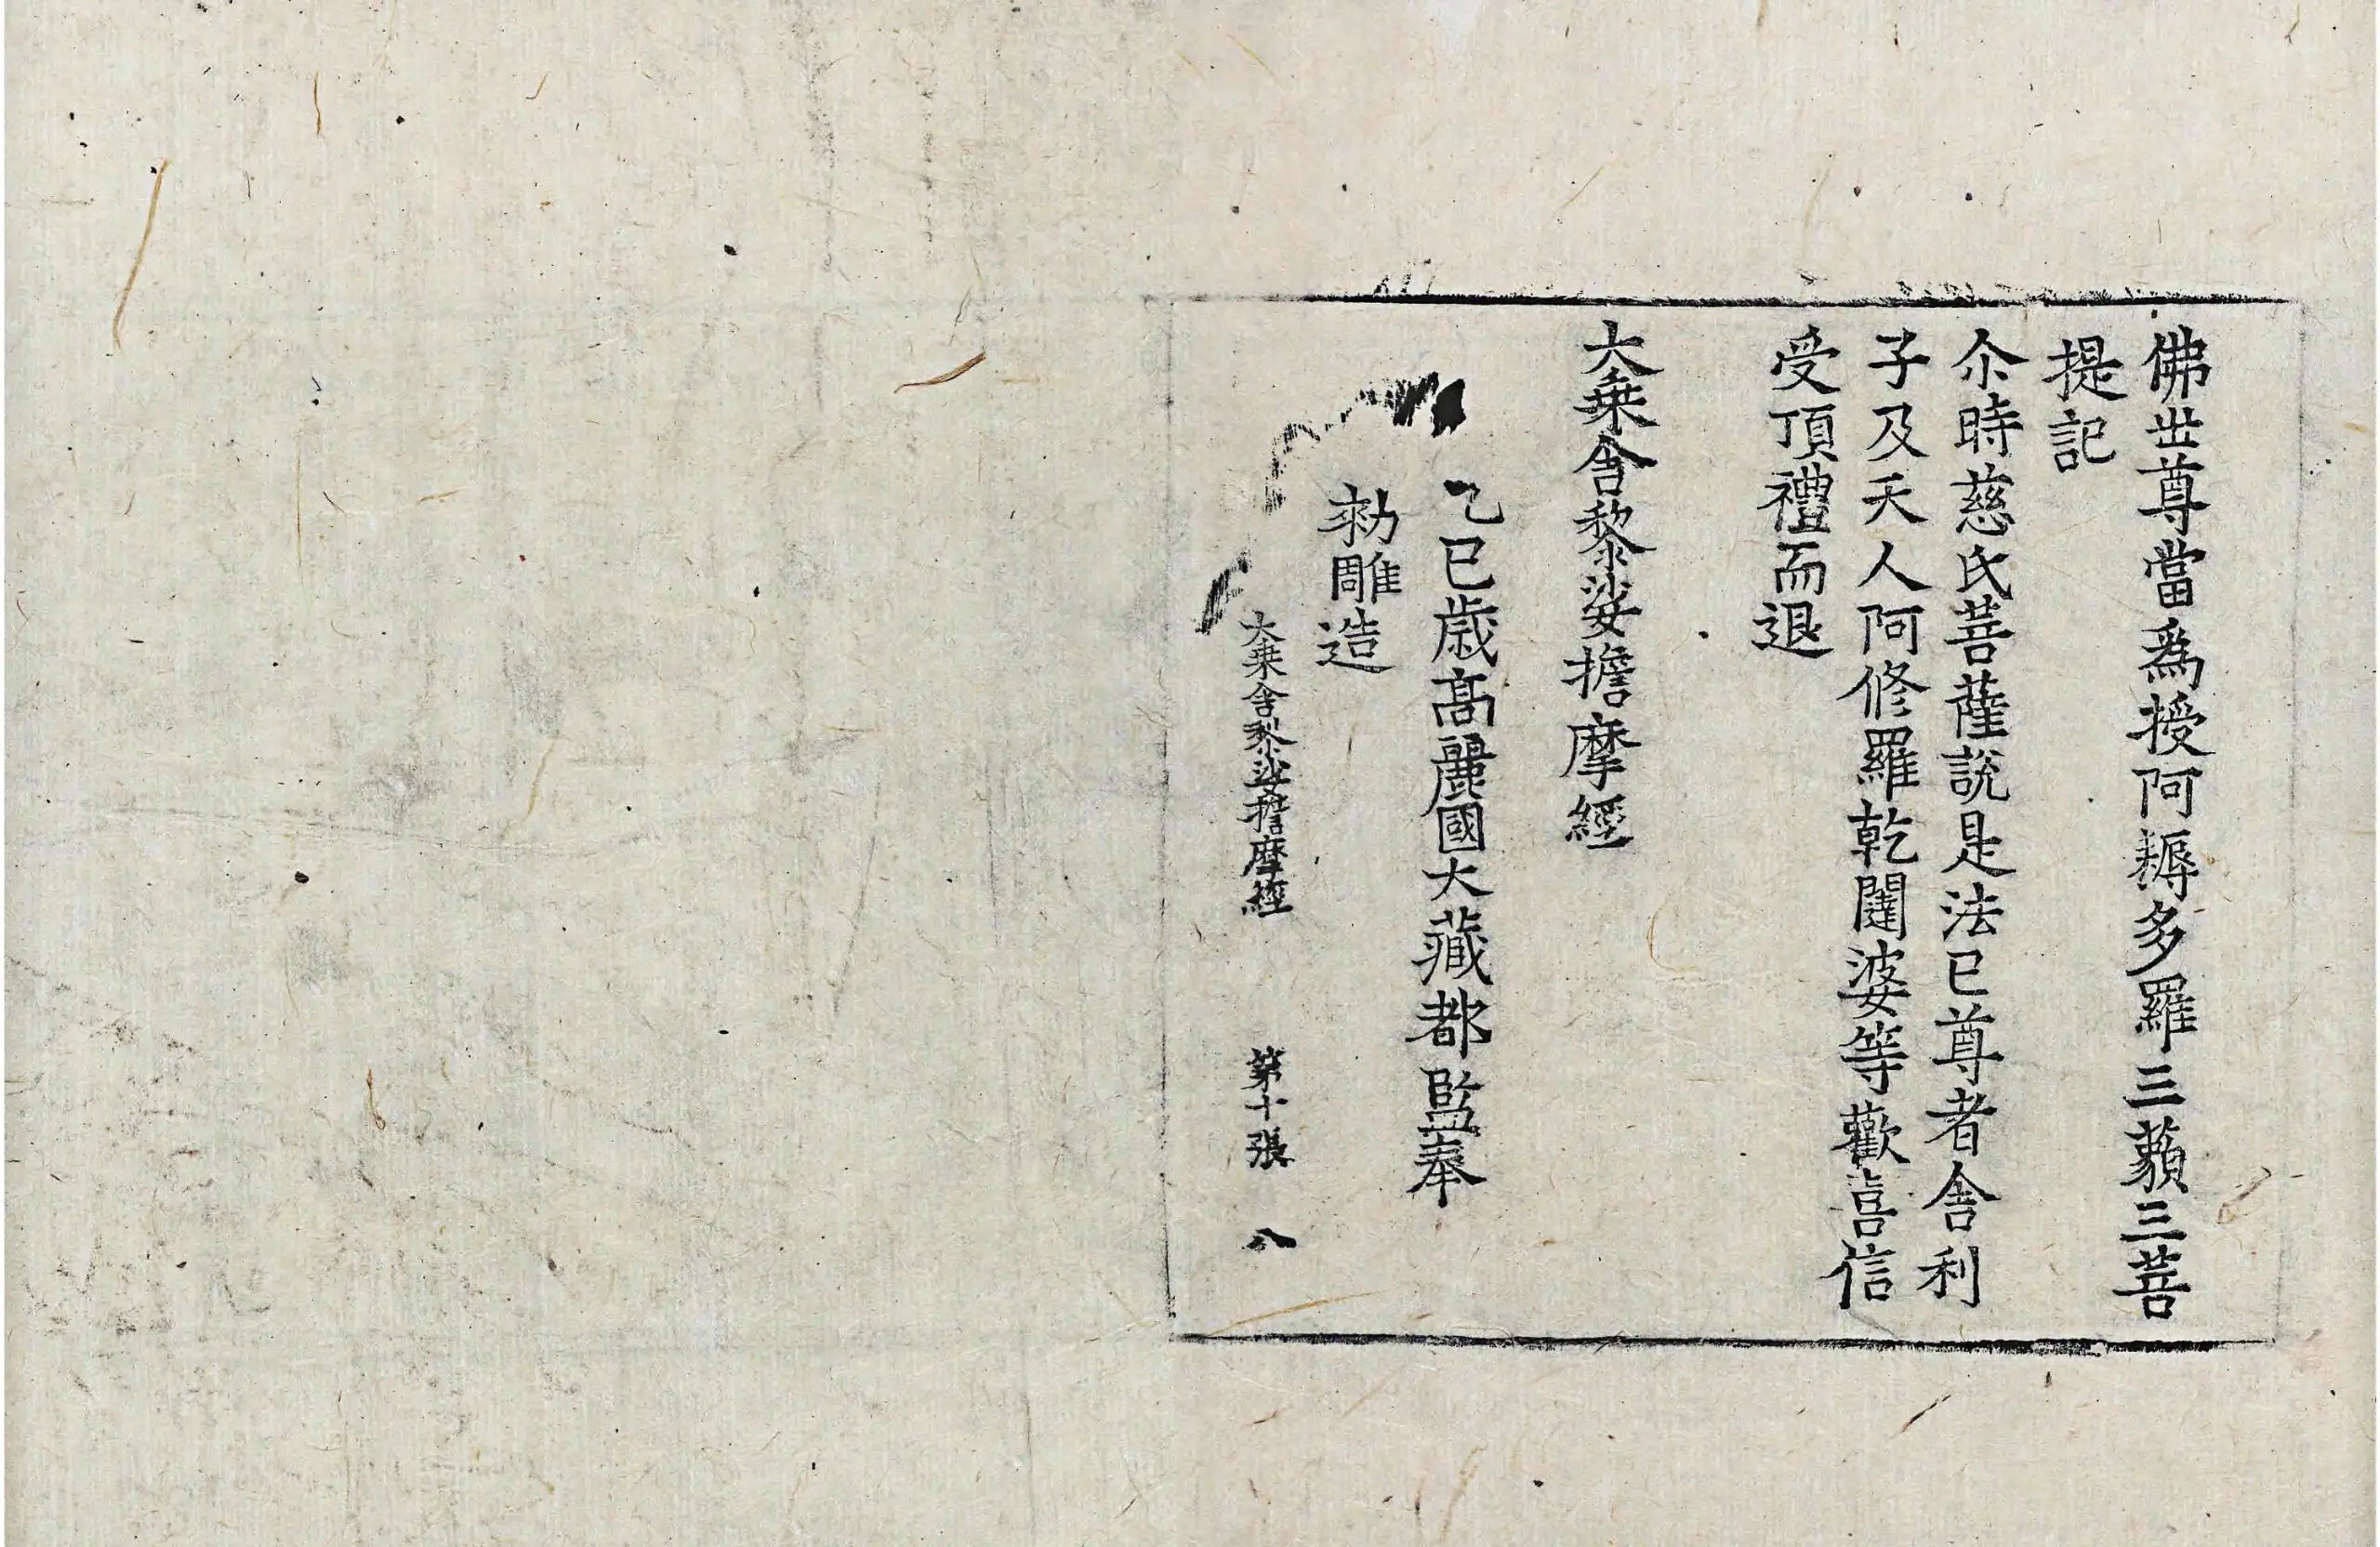 佛世尊當爲授阿耨多羅三藐三菩
提記
尒時慈氏菩薩說是法已尊者舎利
子及天人阿修羅乾闥婆等歡喜信
受頂禮而退
大乗舎黎娑擔摩經
乙巳歳髙麗國大藏都監奉
勑雕造
大乗舎黎娑擔摩經 第十張 八